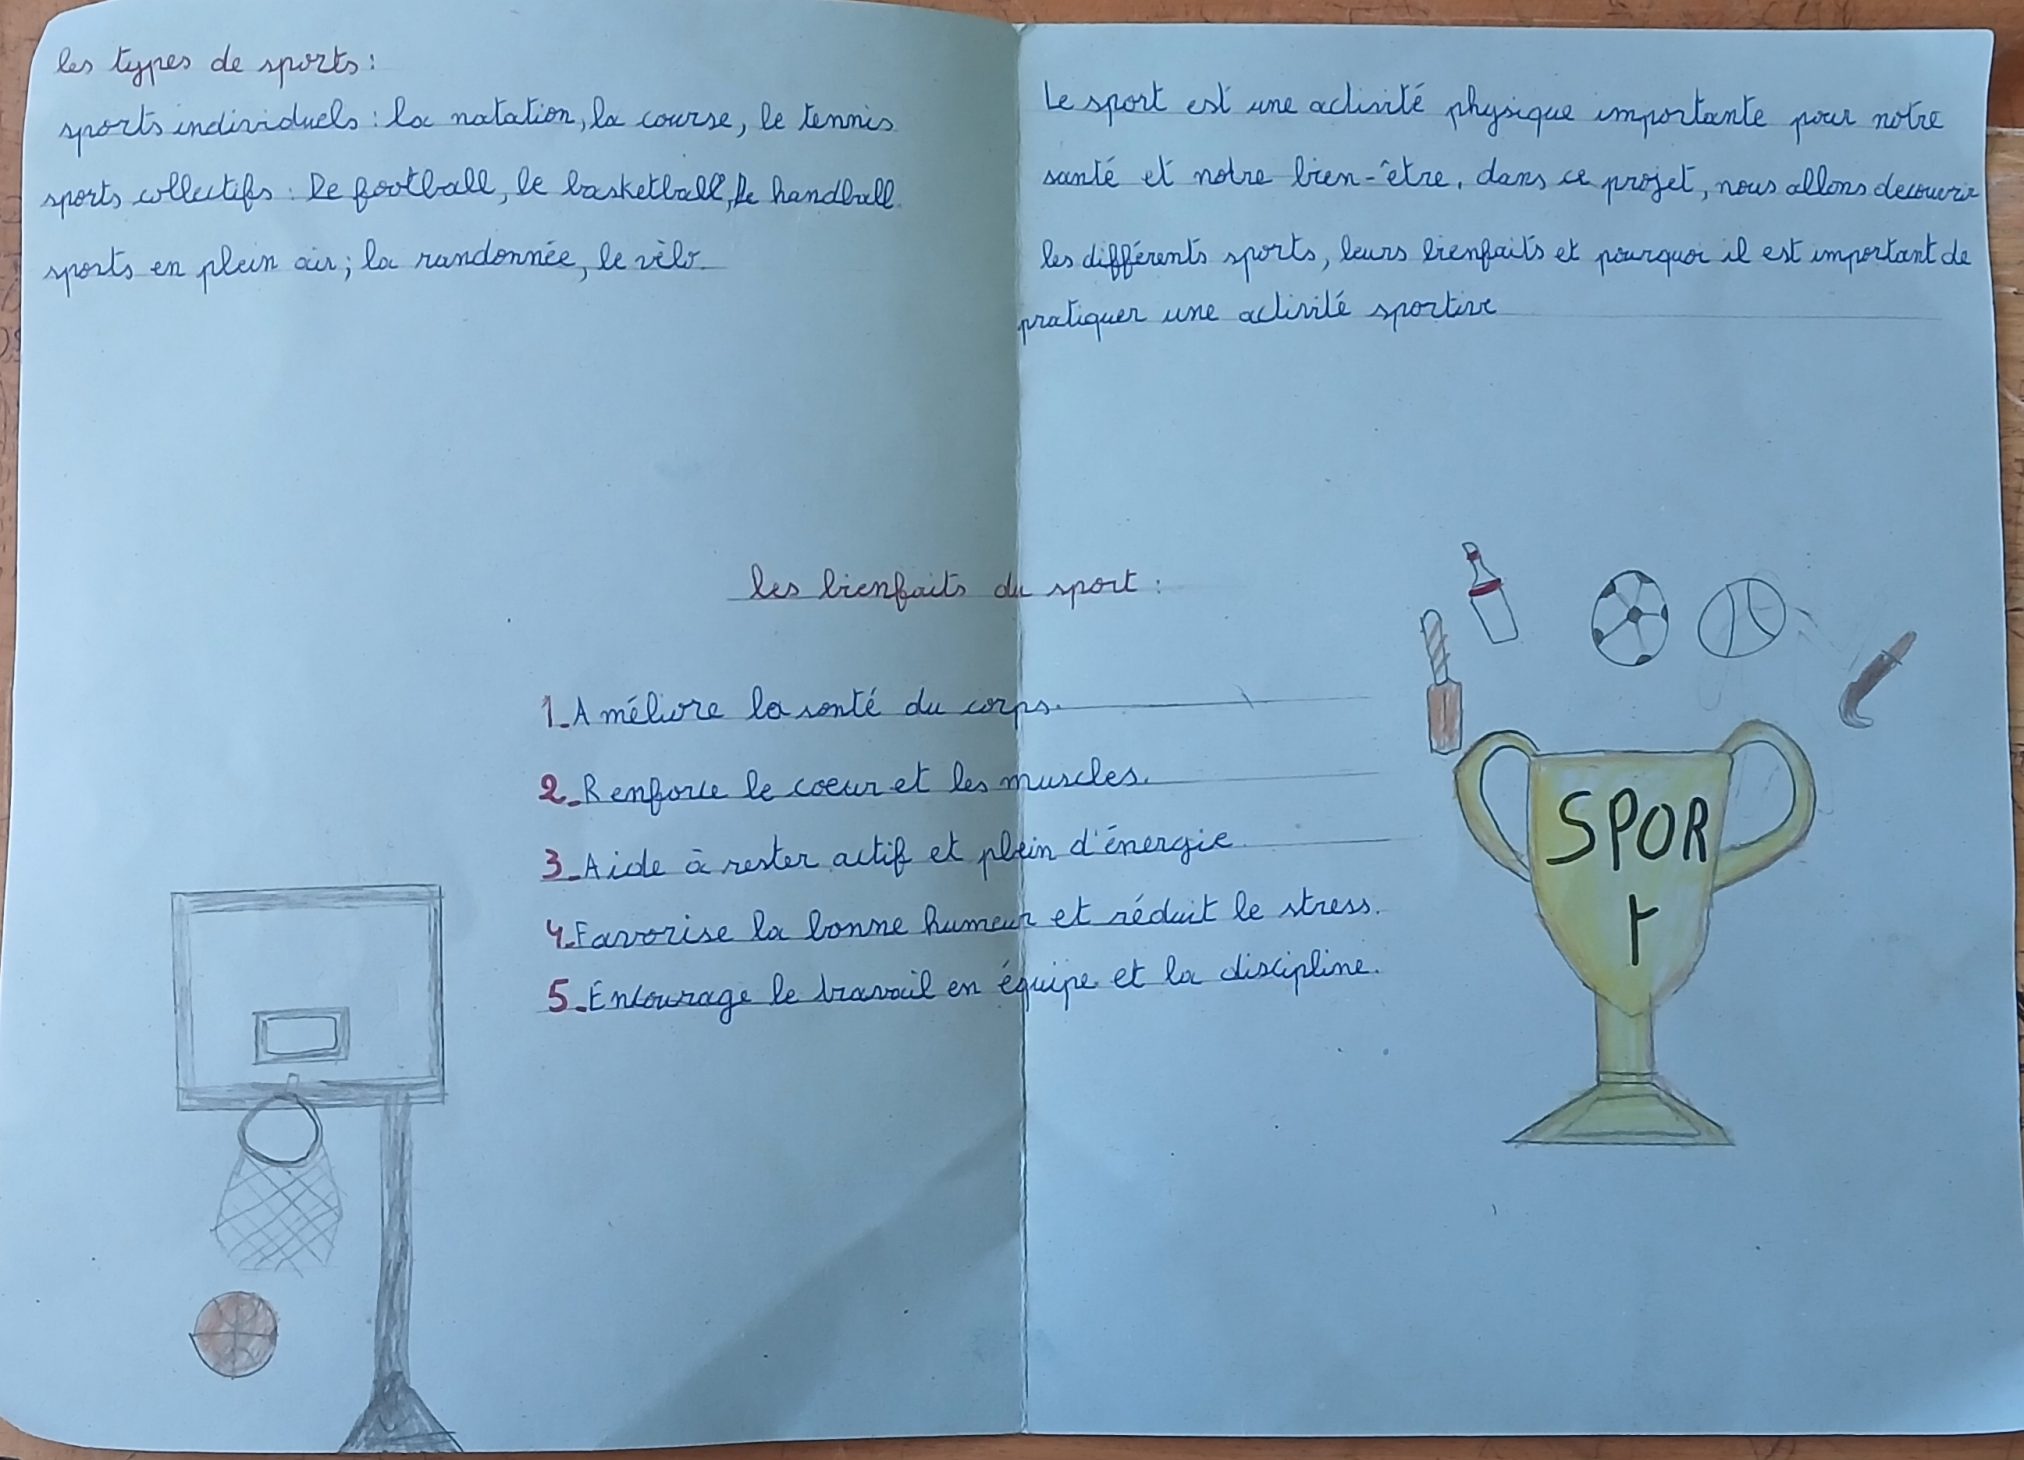 les types de sports :
sports individuels : la natation, la course, le tennis
sports collectifs : Le football, le basketball, le handball.
sports en plein air ; la randonnée, le vèlo.
Le sport est une activité physique importante pour notre
santé et notre bien-être. dans ce projet, nous allons decouvrir
les différents sports, leurs bienfaits et pourquoi il est important de
pratiquer une activité sportive
les bienfaits du sport :
1_Améliore la santé du corps.
2_Renforce le coeur et les muscles.
3_Aide à rester actif et plein d'énergie.
4_Favorise la bonne humeur et réduit le stress.
5_Encourage le travail en équipe et la discipline.
SPOR
T